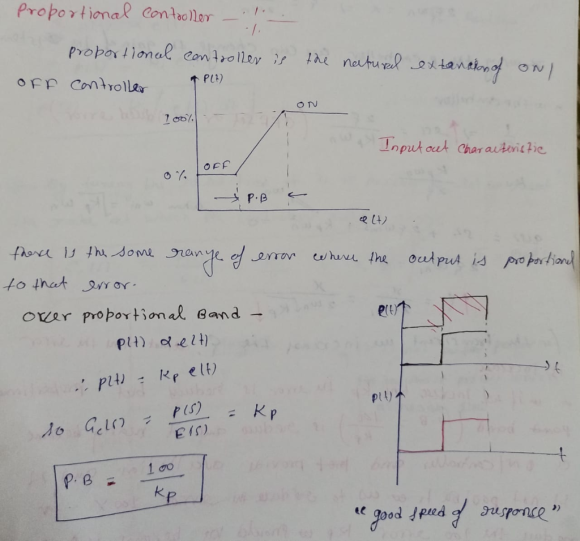 Proportional Controller -
Proportional controller is the natural extansion of ON/
OFF Controller
P(t)
ON
100%
OFF
0%
P.B
e(t)
Input out characteristic
there is the some range of error where the output is proportional
to that error.
Over proportional Band -
P(t) α e(t)
∴ P(t) = Kp e(t)
so Gc(s) = P(s)/E(s) = Kp
P.B = 100/Kp
e(t)
t
P(t)
t
"good speed of response"